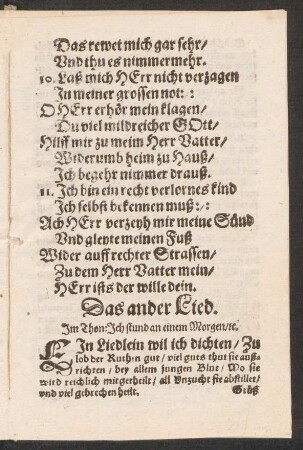 Das rewet mich gar sehr/
Vnd thu es nimmermehr.
10. Laß mich HErr nicht verzagen
In meiner grossen not:/:
O HErr erhör mein klagen/
Du viel mildreicher GOtt/
Hilff mir zu meim Herr Vatter/
Widerumb heim zu Hauß/
Ich begehr nimmer drauß.
11. Ich bin ein recht verlornes kind
Ich selbst bekennen muß:/:
Ach HErr verzeyh mir meine Sünd
Vnd gleyte meinen Fuß
Wider auff rechter Strassen/
Zu dem Herr Vatter mein/
HErr ists der wille dein.
Das ander Lied.
Im Thon: Ich stund an einem Morgen/ꝛc.
EIn Liedlein wil ich dichten/ Zu
lob der Ruthen gut/ viel guts thut sie auß-
richten/ bey allem jungen Blut/ Wo sie
wird reichlich mitgetheilt/ all Vnzucht sie abstillet/
vnd viel gebrechen heilt.
Grüß